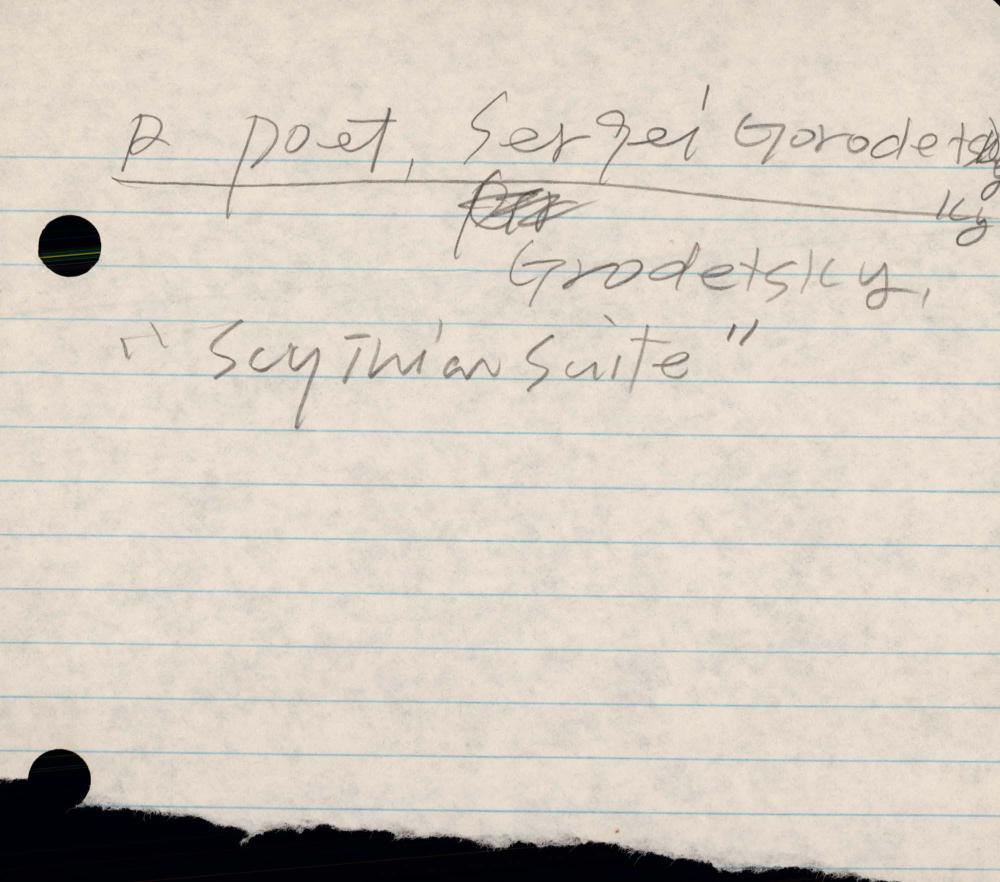 R poet, Sergei Gorodetsky
ky
Grodetsky,
"Scythian Suite"